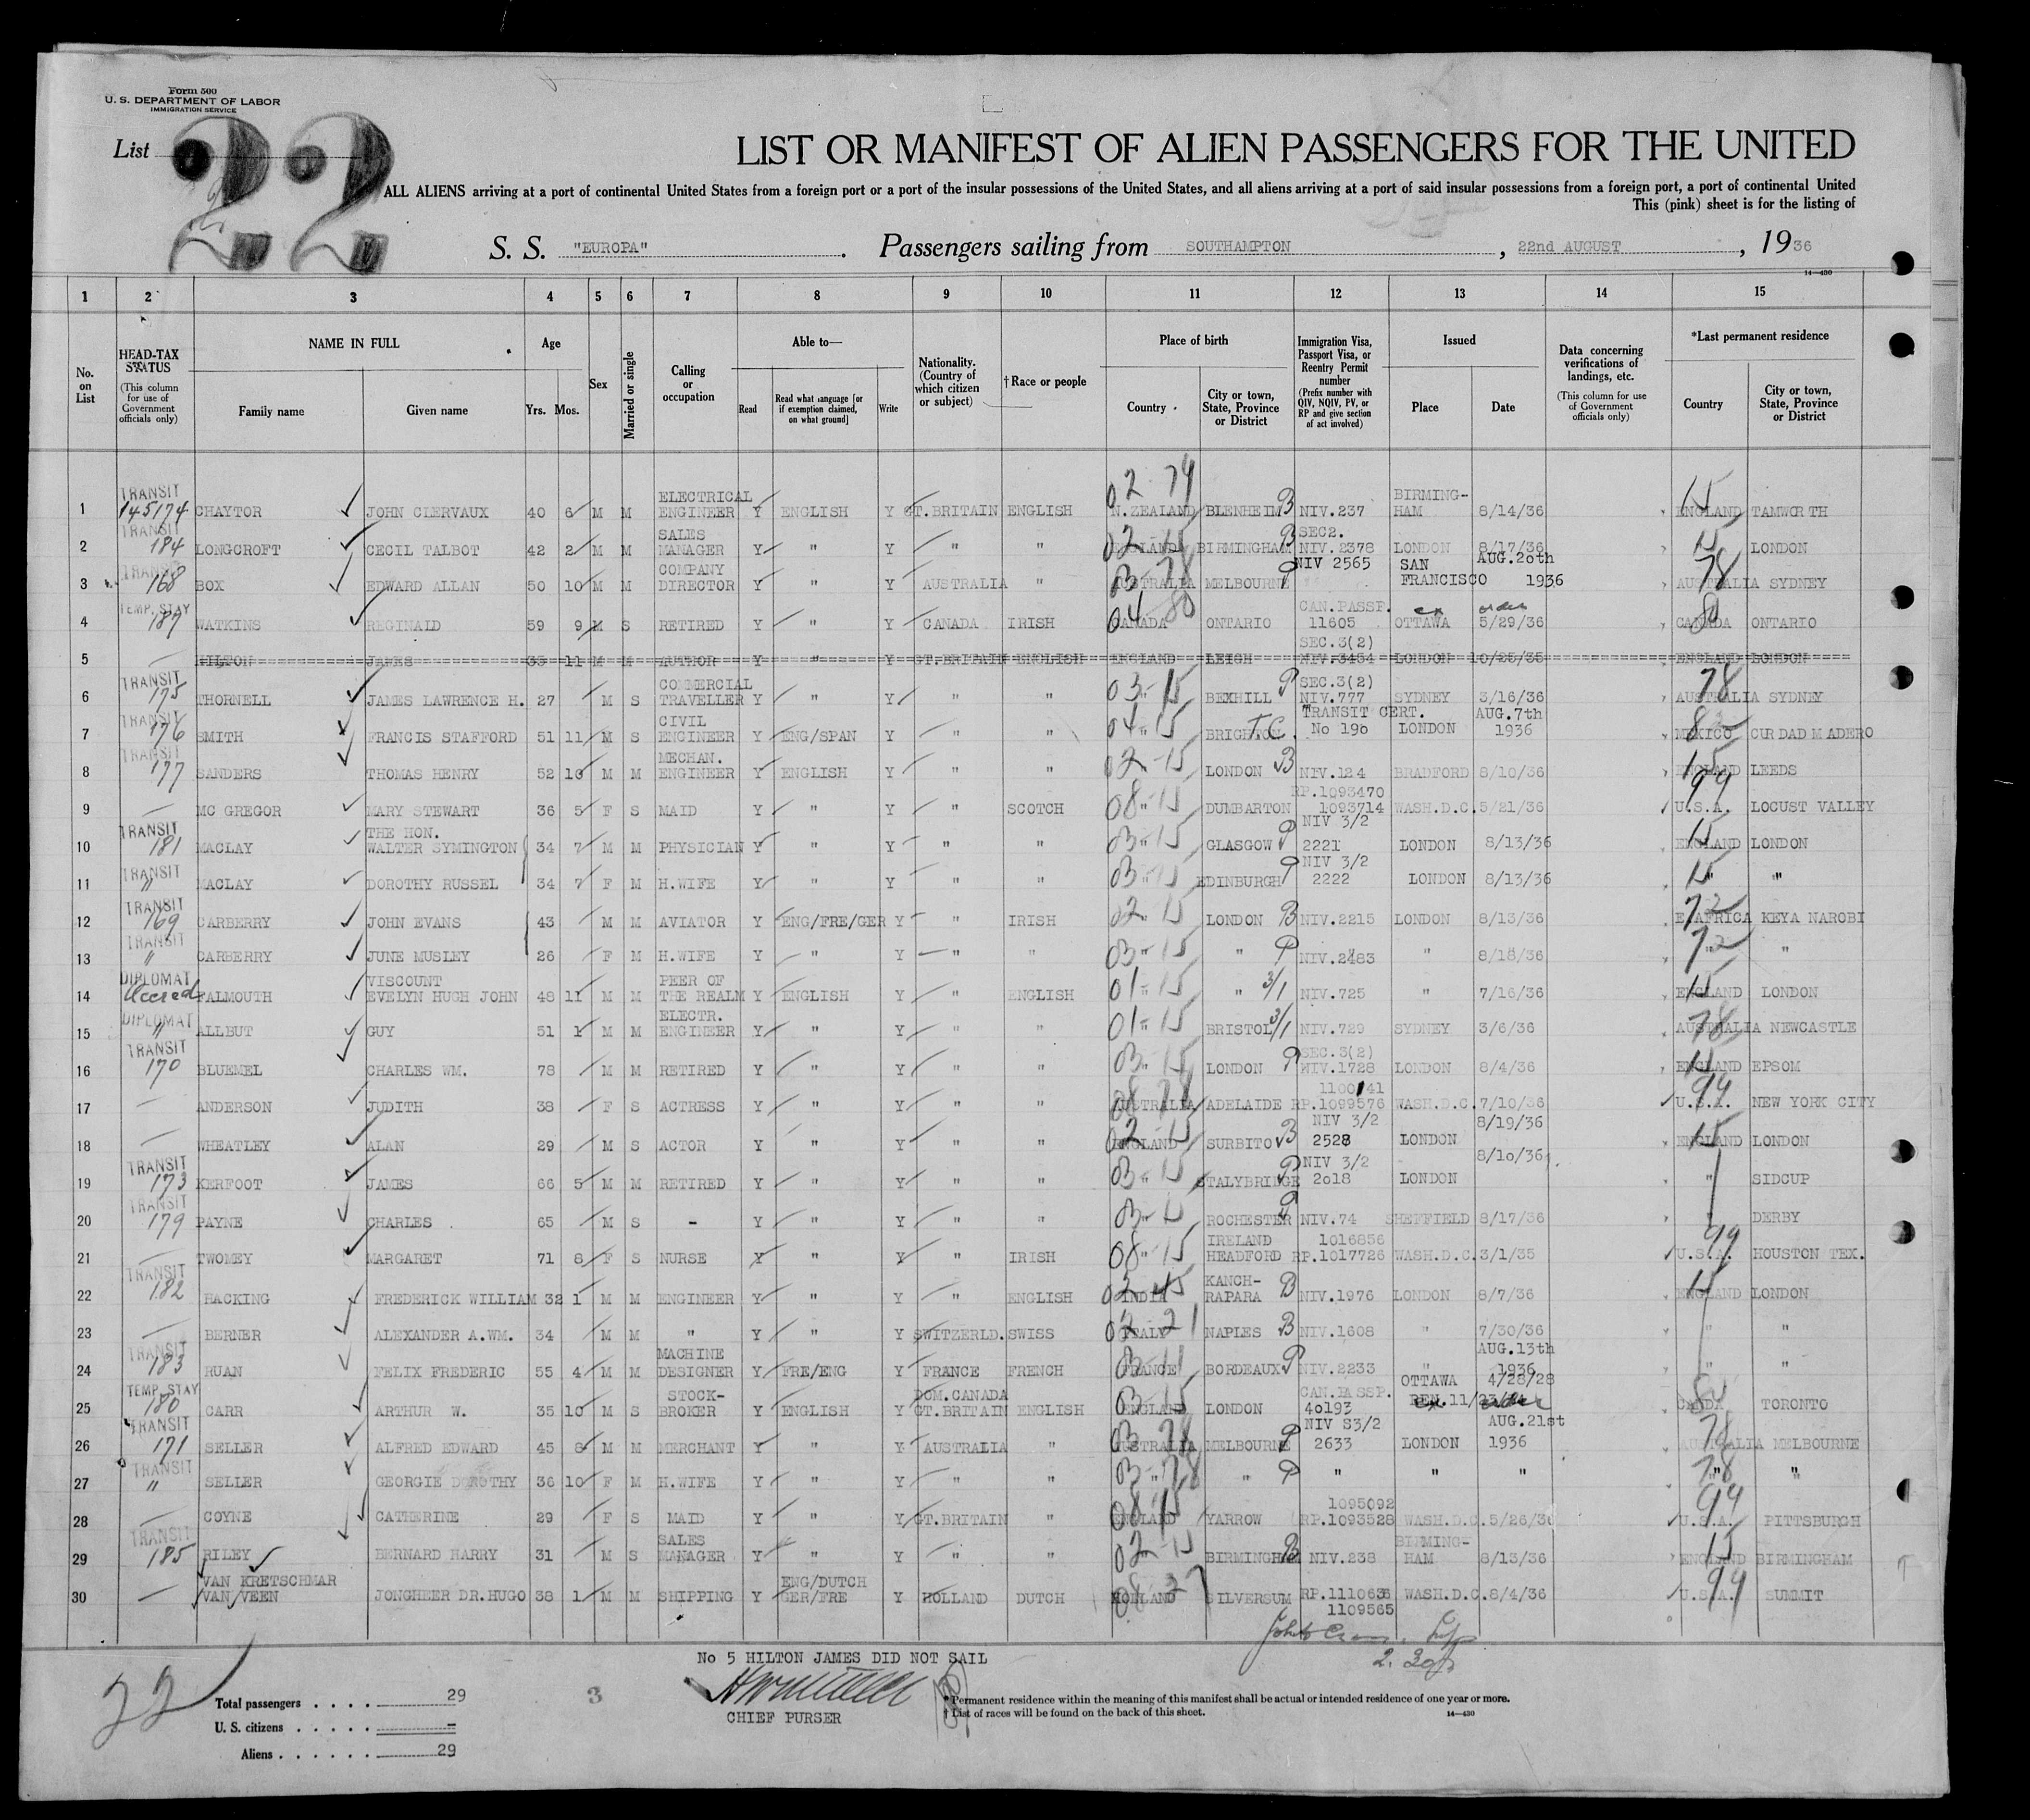 Form 500
U. S. DEPARTMENT OF LABOR
IMMIGRATION SERVICE
List 22
LIST OR MANIFEST OF ALIEN PASSENGERS FOR THE UNITED
ALL ALIENS arriving at a port of continental United States from a foreign port or a port of the insular possessions of the United States, and all aliens arriving at a port of said insular possessions from a foreign port, a port of continental United
This (pink) sheet is for the listing of
S. S. "EUROPA". Passengers sailing from SOUTHAMPTON, 22nd AUGUST, 1936
14-430
1 2 3 4 5 6 7 8 9 10 11 12 13 14 15
No. on List
HEAD-TAX STATUS (This column for use of Government officials only)
NAME IN FULL Family name Given name
Age Yrs. Mos.
Sex
Married or single
Calling or occupation
Able to— Read Read what language [or if exemption claimed, on what ground] Write
Nationality. (Country of which citizen or subject)
†Race or people
Place of birth Country City or town, State, Province or District
Immigration Visa, Passport Visa, or Reentry Permit number (Prefix number with QIV, NQIV, PV, or RP and give section of act involved)
Issued Place Date
Data concerning verifications of landings, etc. (This column for use of Government officials only)
*Last permanent residence Country City or town, State, Province or District
1 TRANSIT 145174 CHAYTOR JOHN CLERVAUX 40 6 M M ELECTRICAL ENGINEER Y ENGLISH Y GT.BRITAIN ENGLISH 02-79 N.ZEALAND BLENHEIM B NIV.237 BIRMING-HAM 8/14/36 15 ENGLAND TAMWORTH
2 TRANSIT 184 LONGCROFT CECIL TALBOT 42 2 M M SALES MANAGER Y " Y " " 02-15 ENGLAND BIRMINGHAM B SEC2. NIV.2378 LONDON 8/17/36 15 LONDON
3 TRANSIT 168 BOX EDWARD ALLAN 50 10 M M COMPANY DIRECTOR Y " Y AUSTRALIA " 03-78 AUSTRALIA MELBOURNE P NIV 2565 SAN FRANCISCO AUG.20th 1936 78 AUSTRALIA SYDNEY
4 TEMP. STAY 187 WATKINS REGINALD 59 9 M S RETIRED Y " Y CANADA IRISH 04-80 CANADA ONTARIO CAN.PASSP. 11605 ex OTTAWA order 5/29/36 80 CANADA ONTARIO
5 — HILTON JAMES 35 11 M M AUTHOR Y " Y GT.BRITAIN ENGLISH ENGLAND LEIGH SEC.3(2) NIV.3454 LONDON 10/25/35 ENGLAND LONDON
6 TRANSIT 175 THORNELL JAMES LAWRENCE H. 27 M S COMMERCIAL TRAVELLER Y " Y " " 03-15 BEXHILL P SEC.3(2) NIV.777 SYDNEY 3/16/36 78 AUSTRALIA SYDNEY
7 TRANSIT 176 SMITH FRANCIS STAFFORD 51 11 M S CIVIL ENGINEER Y ENG/SPAN Y " " 04-15 BRIGHTON T.C. TRANSIT CERT. No 190 LONDON AUG.7th 1936 82 MEXICO CUR DAD MADERO
8 TRANSIT 177 SANDERS THOMAS HENRY 52 10 M M MECHAN. ENGINEER Y ENGLISH Y " " 02-15 LONDON B NIV.124 BRADFORD 8/10/36 15 ENGLAND LEEDS
9 — MC GREGOR MARY STEWART 36 5 F S MAID Y " Y " SCOTCH 08-15 DUMBARTON RP.1093470 1093714 WASH.D.C. 5/21/36 99 U.S.A. LOCUST VALLEY
10 TRANSIT 181 MACLAY THE HON. WALTER SYMINGTON 34 7 M M PHYSICIAN Y " Y " " 03-15 GLASGOW P NIV 3/2 2221 LONDON 8/13/36 15 ENGLAND LONDON
11 TRANSIT " MACLAY DOROTHY RUSSEL 34 7 F M H.WIFE Y " Y " " 03-15 EDINBURGH P NIV 3/2 2222 LONDON 8/13/36 15 " "
12 TRANSIT 169 CARBERRY JOHN EVANS 43 M M AVIATOR Y ENG/FRE/GER Y " IRISH 02-15 LONDON B NIV.2215 LONDON 8/13/36 72 E.AFRICA KEYA NAROBI
13 TRANSIT " CARBERRY JUNE MUSLEY 26 F M H.WIFE Y " Y " " 03-15 " P NIV.2483 " 8/18/36 72 " "
14 DIPLOMAT Accred FALMOUTH VISCOUNT EVELYN HUGH JOHN 48 11 M M PEER OF THE REALM Y ENGLISH Y " ENGLISH 01-15 " 3/1 NIV.725 " 7/16/36 15 ENGLAND LONDON
15 DIPLOMAT " ALLBUT GUY 51 1 M M ELECTR. ENGINEER Y " Y " " 01-15 BRISTOL 3/1 NIV.729 SYDNEY 3/6/36 78 AUSTRALIA NEWCASTLE
16 TRANSIT 170 BLUEMEL CHARLES WM. 78 M M RETIRED Y " Y " " 03-15 LONDON P SEC.3(2) NIV.1728 LONDON 8/4/36 15 ENGLAND EPSOM
17 — ANDERSON JUDITH 38 F S ACTRESS Y " Y " " 08-78 AUSTRALIA ADELAIDE 1100141 RP.1099576 WASH.D.C. 7/10/36 99 U.S.A. NEW YORK CITY
18 — WHEATLEY ALAN 29 M S ACTOR Y " Y " " 02-15 ENGLAND SURBITO B NIV 3/2 2528 LONDON 8/19/36 15 ENGLAND LONDON
19 TRANSIT 173 KERFOOT JAMES 66 5 M M RETIRED Y " Y " " 03-15 STALYBRIDGE P NIV 3/2 2018 LONDON 8/10/36 " SIDCUP
20 TRANSIT 179 PAYNE CHARLES 65 M S - Y " Y " " 03-15 ROCHESTER P NIV.74 SHEFFIELD 8/17/36 " DERBY
21 — TWOMEY MARGARET 71 8 F S NURSE Y " Y " IRISH 08-15 IRELAND HEADFORD 1016856 RP.1017726 WASH.D.C. 3/1/35 99 U.S.A. HOUSTON TEX.
22 TRANSIT 182 HACKING FREDERICK WILLIAM 32 1 M M ENGINEER Y " Y " ENGLISH 02-45 INDIA KANCH-RAPARA B NIV.1976 LONDON 8/7/36 15 ENGLAND LONDON
23 — BERNER ALEXANDER A.WM. 34 M M " Y " Y SWITZERLD. SWISS 02-21 ITALY NAPLES B NIV.1608 " 7/30/36 " "
24 TRANSIT 183 RUAN FELIX FREDERIC 55 4 M M MACHINE DESIGNER Y FRE/ENG Y FRANCE FRENCH 03-11 FRANCE BORDEAUX P NIV.2233 " AUG.13th 1936 " "
25 TEMP. STAY 180 CARR ARTHUR W. 35 10 M S STOCK-BROKER Y ENGLISH Y DOM.CANADA GT.BRITAIN ENGLISH 03-15 ENGLAND LONDON CAN.PASSP. 40193 OTTAWA 4/28/28 REN.11/23/ ex order CANADA TORONTO
26 TRANSIT 171 SELLER ALFRED EDWARD 45 8 M M MERCHANT Y " Y AUSTRALIA " 03-78 AUSTRALIA MELBOURNE P NIV S3/2 2633 LONDON AUG.21st 1936 78 AUSTRALIA MELBOURNE
27 TRANSIT " SELLER GEORGIE DOROTHY 36 10 F M H.WIFE Y " Y " " 03-78 " " P " " " 78 " "
28 — COYNE CATHERINE 29 F S MAID Y " Y GT.BRITAIN " 08-15 ENGLAND YARROW 1095092 RP.1093528 WASH.D.C. 5/26/36 99 U.S.A. PITTSBURGH
29 TRANSIT 185 RILEY BERNARD HARRY 31 M S SALES MANAGER Y " Y " " 02-15 " BIRMINGHAM B NIV.238 BIRMING-HAM 8/13/36 15 ENGLAND BIRMINGHAM
30 — VAN KRETSCHMAR VAN VEEN JONGHEER DR.HUGO 38 1 M M SHIPPING Y ENG/DUTCH GER/FRE Y HOLLAND DUTCH 08-27 HOLLAND SILVERSUM RP.1110636 1109565 WASH.D.C. 8/4/36 99 U.S.A. SUMMIT
No 5 HILTON JAMES DID NOT SAIL
CHIEF PURSER
22
3
Total passengers . . . . 29
U. S. citizens . . . . . –
Aliens . . . . . . 29
* Permanent residence within the meaning of this manifest shall be actual or intended residence of one year or more.
† List of races will be found on the back of this sheet.
14-430